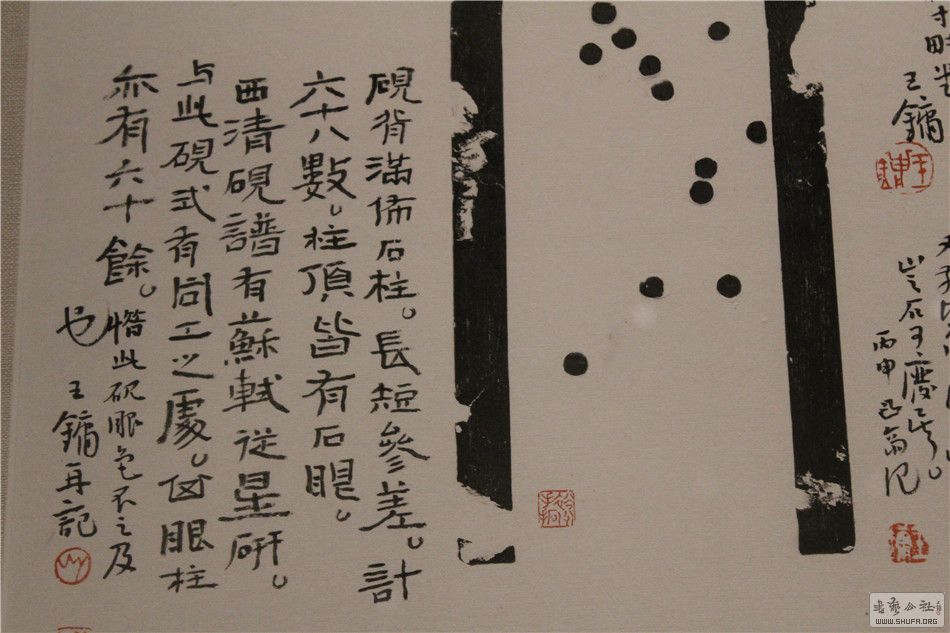 王鏞
丙申
硯背滿佈石柱。長短參差。計
六十八數。柱頂皆有石眼。
西清硯譜有蘇軾從星研。
与此硯式有同工之處。眼柱
亦有六十餘。惜此硯眼色不之及
也 王鏞再記
書藝公社
WWW.SHUFA.ORG